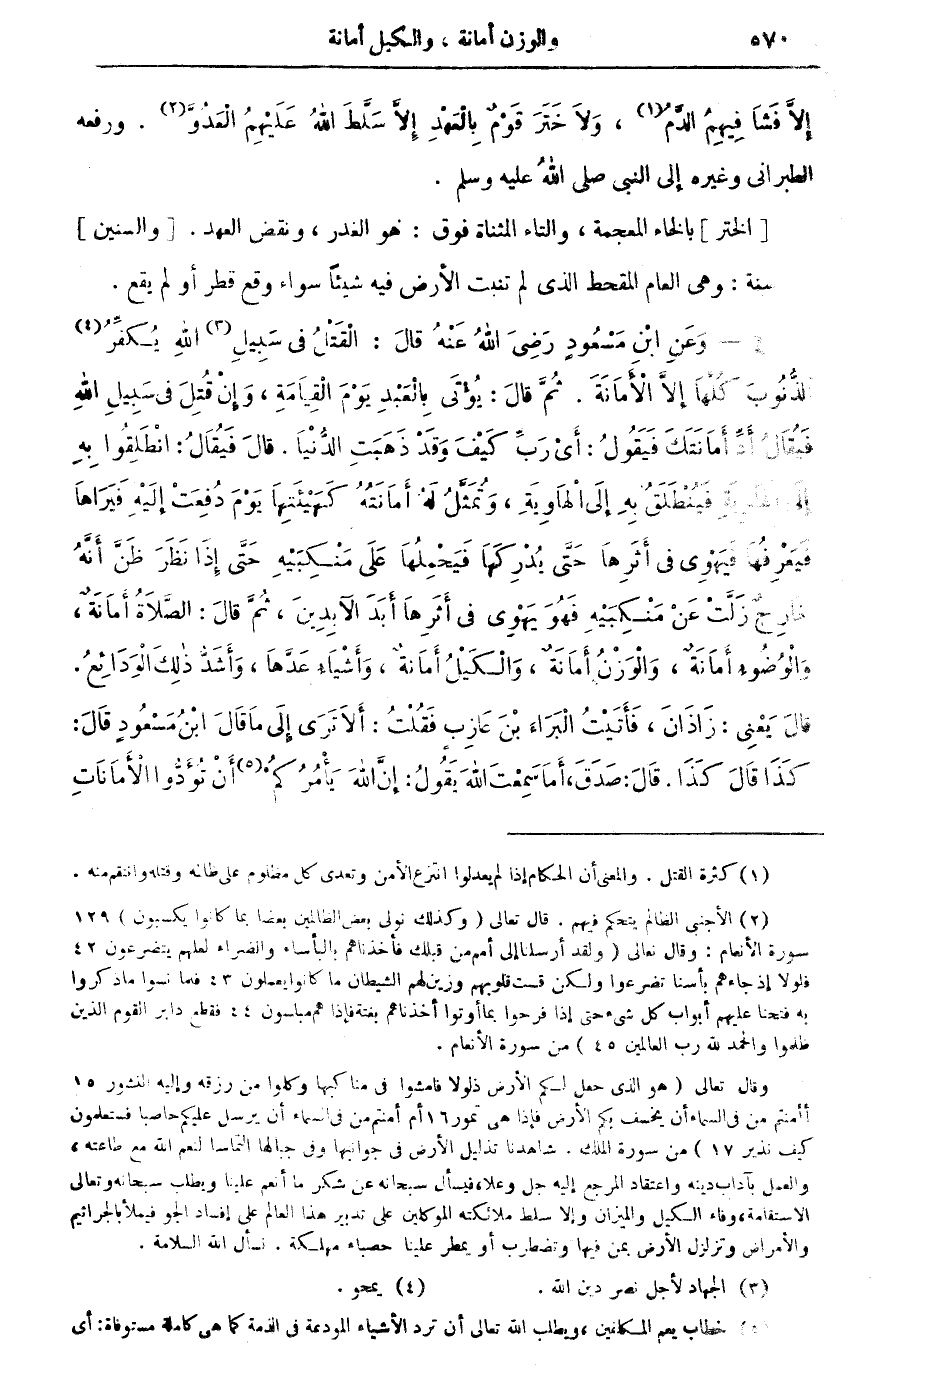 ٥٧٠ والوزن أمانة ، والكيل أمانة
إِلاَّ فَشَا فِيهِمُ الدَّمُ(١) ، وَلاَ خَتَرَ قَوْمٌ بِالْعَهْدِ إِلاَّ سَلَّطَ اللهُ عَلَيْهِمُ الْعَدُوَّ(٢) . ورفعه
الطبرانى وغيره إلى النبى صلى اللهُ عليه وسلم .
[ الختر ] بالخاء المعجمة ، والتاء المثناة فوق : هو الغدر ، ونقض العهد . [ والسنين ]
سنة : وهى العام المقحط الذى لم تنبت الأرض فيه شيئاً سواء وقع قطر أو لم يقع .
— وَعَنِ ابْنِ مَسْعُودٍ رَضِىَ اللهُ عَنْهُ قالَ : الْقَتْلُ فى سَبِيلِ(٣) اللهِ يُكَفِّرُ(٤)
الذُّنُوبَ كُلَّهَا إِلاَّ الْأَمَانَةَ . ثُمَّ قالَ : يُؤْتَى بِالْعَبْدِ يَوْمَ الْقِيَامَةِ ، وَإِنْ قُتِلَ فى سَبِيلِ اللهِ
فَيُقَالُ أَدِّ أَمَانَتَكَ فَيَقُولُ : أَىْ رَبِّ كَيْفَ وَقَدْ ذَهَبَتِ الدُّنْيَا . قالَ فَيُقَالُ : انْطَلِقُوا بِهِ
إِلَى الْهَاوِيَةِ فَيُنْطَلَقُ بِهِ إِلَى الْهَاوِيَةِ ، وَتُمَثَّلُ لَهُ أَمَانَتُهُ كَهَيْئَتِهَا يَوْمَ دُفِعَتْ إِلَيْهِ فَيَرَاهَا
فَيَعْرِفُهَا فَيَهْوِى فى أَثَرِهَا حَتَّى يُدْرِكَهَا فَيَحْمِلُهَا عَلَى مَنْكِبَيْهِ حَتَّى إِذَا نَظَرَ ظَنَّ أَنَّهُ
خَارِجٌ زَلَّتْ عَنْ مَنْكِبَيْهِ فَهُوَ يَهْوِى فى أَثَرِهَا أَبَدَ الْآبِدِينَ ، ثُمَّ قالَ : الصَّلَاةُ أَمَانَةٌ ،
وَالْوُضُوءُ أَمَانَةٌ ، وَالْوَزْنُ أَمَانَةٌ ، وَالْكَيْلُ أَمَانَةٌ ، وَأَشْيَاءُ عَدَّهَا ، وَأَشَدُّ ذٰلِكَ الْوَدَائِعُ .
قالَ يَعْنِى : زَاذَانَ ، فَأَتَيْتُ الْبَرَاءَ بْنَ عَازِبٍ فَقُلْتُ : أَلَا تَرَى إِلَى مَا قَالَ ابْنُ مَسْعُودٍ قَالَ :
كَذَا قَالَ كَذَا . قَالَ : صَدَقَ ، أَمَا سَمِعْتَ اللهَ يَقُولُ : إِنَّ اللهَ يَأْمُرُكُمْ(٥) أَنْ تُؤَدُّوا الْأَمَانَاتِ
(١) كثرة القتل . والمعنى أن الحكام إذا لم يعدلوا انتزع الأمن وتعدى كل مظلوم على ظالمه وقتله وانتقم منه .
(٢) الأجنبى الظالم يتحكم فيهم . قال تعالى ( وكذلك نولى بعض الظالمين بعضا بما كانوا يكسبون ) ١٢٩
سورة الأنعام : وقال تعالى ( ولقد أرسلنا إلى أمم من قبلك فأخذناهم بالبأساء والضراء لعلهم يتضرعون ٤٢
فلولا إذ جاءهم بأسنا تضرعوا ولكن قست قلوبهم وزين لهم الشيطان ما كانوا يعملون ٤٣ فلما نسوا ما ذكروا
به فتحنا عليهم أبواب كل شىء حتى إذا فرحوا بما أوتوا أخذناهم بغتة فإذا هم مبلسون ٤٤ فقطع دابر القوم الذين
ظلموا والحمد لله رب العالمين ٤٥ ) من سورة الأنعام .
وقال تعالى ( هو الذى جعل لكم الأرض ذلولا فامشوا فى مناكبها وكلوا من رزقه وإليه النشور ١٥
أأمنتم من فى السماء أن يخسف بكم الأرض فإذا هى تمور ١٦ أم أمنتم من فى السماء أن يرسل عليكم حاصبا فستعلمون
كيف نذير ١٧ ) من سورة الملك . شاهدنا تذليل الأرض فى جوانبها وفى جبالها التماسا لنعم الله مع طاعته ،
والعمل بآداب دينه واعتقاد المرجع إليه جل وعلا ، فيسأل سبحانه عن شكر ما أنعم علينا ويطلب سبحانه وتعالى
الاستقامة ، وفاء الكيل والميزان وإلا سلط ملائكته الموكلين على تدبير هذا العالم على إفساد الجو فيملأ بالجراثيم
والأمراض وتزلزل الأرض بمن فيها وتضطرب أو يمطر علينا حصباء مهلكة . نسأل الله السلامة .
(٣) الجهاد لأجل نصر دين الله . (٤) يمحو .
(٥) خطاب يعم المكلفين ، ويطلب الله تعالى أن ترد الأشياء المودعة فى الذمة كما هى كاملة مستوفاة : أى